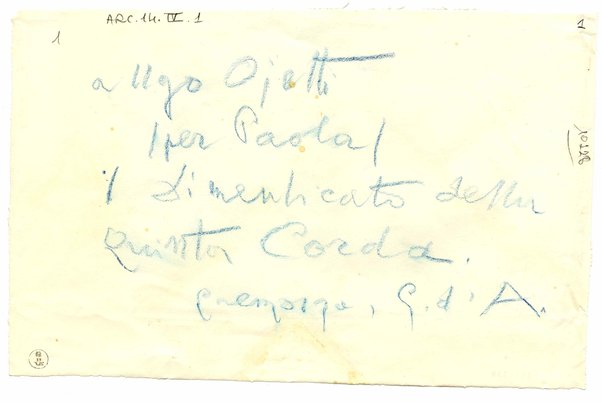 ARC.14.IV.1
1
1
a Ugo Ojetti
/per Paola/
il Dimenticato della
quinta Corda.
G. d'A.